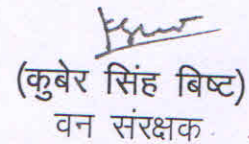 (कुबेर सिंह बिष्ट)
वन संरक्षक